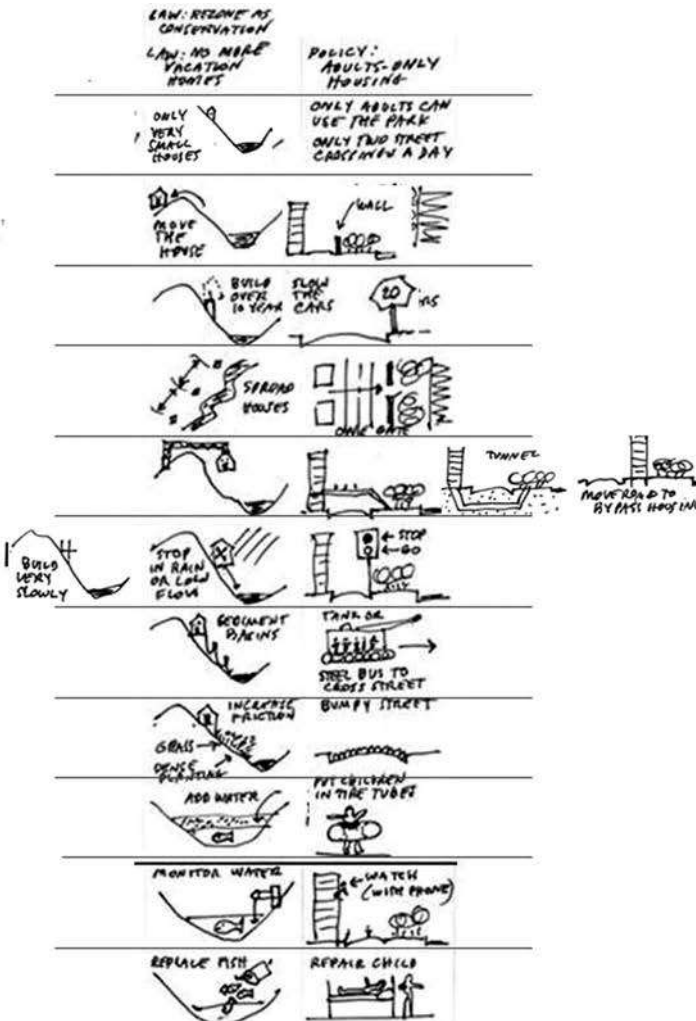 LAW: REZONE AS
CONSERVATION
LAW: NO MORE
VACATION
HOMES
POLICY:
ADULTS-ONLY
HOUSING
ONLY
VERY
SMALL
HOUSES
ONLY ADULTS CAN
USE THE PARK
ONLY TWO STREET
CROSSINGS A DAY
MOVE
THE
HOUSE
WALL
BUILD
OVER
10 YEAR
SLOW
THE
CARS
20
SPREAD
HOUSES
ONE GATE
TUNNEL
MOVE ROAD TO
BYPASS HOUSING
BUILD
VERY
SLOWLY
STOP
IN RAIN
OR LOW
FLOW
STOP
GO
SEDIMENT
BASINS
TANK OR
STEEL BUS TO
CROSS STREET
INCREASE
FRICTION
GRASS
DENSE
PLANTING
BUMPY STREET
ADD WATER
PUT CHILDREN
IN TIRE TUBES
MONITOR WATER
WATCH
(WITH PHONE)
REPLACE FISH
REPAIR CHILD